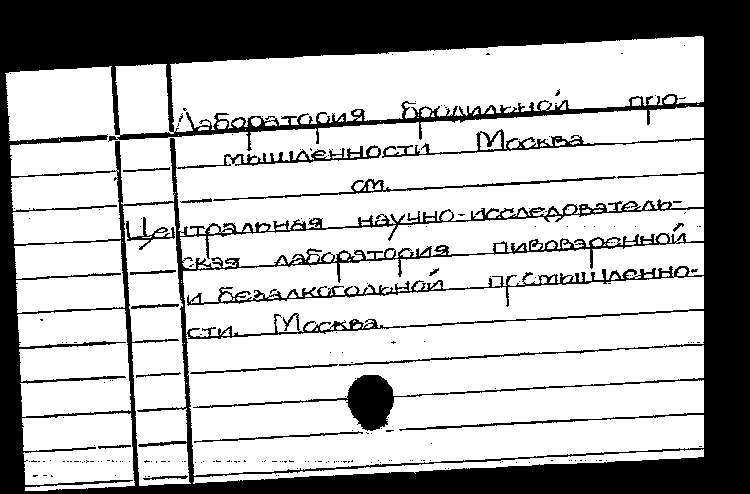 Лаборатория бродильной про-
мышленности Москва
см.
Центральная научно-исследователь-
ская лаборатория пивоваренной
и безалкогольной промышленно-
сти. Москва.